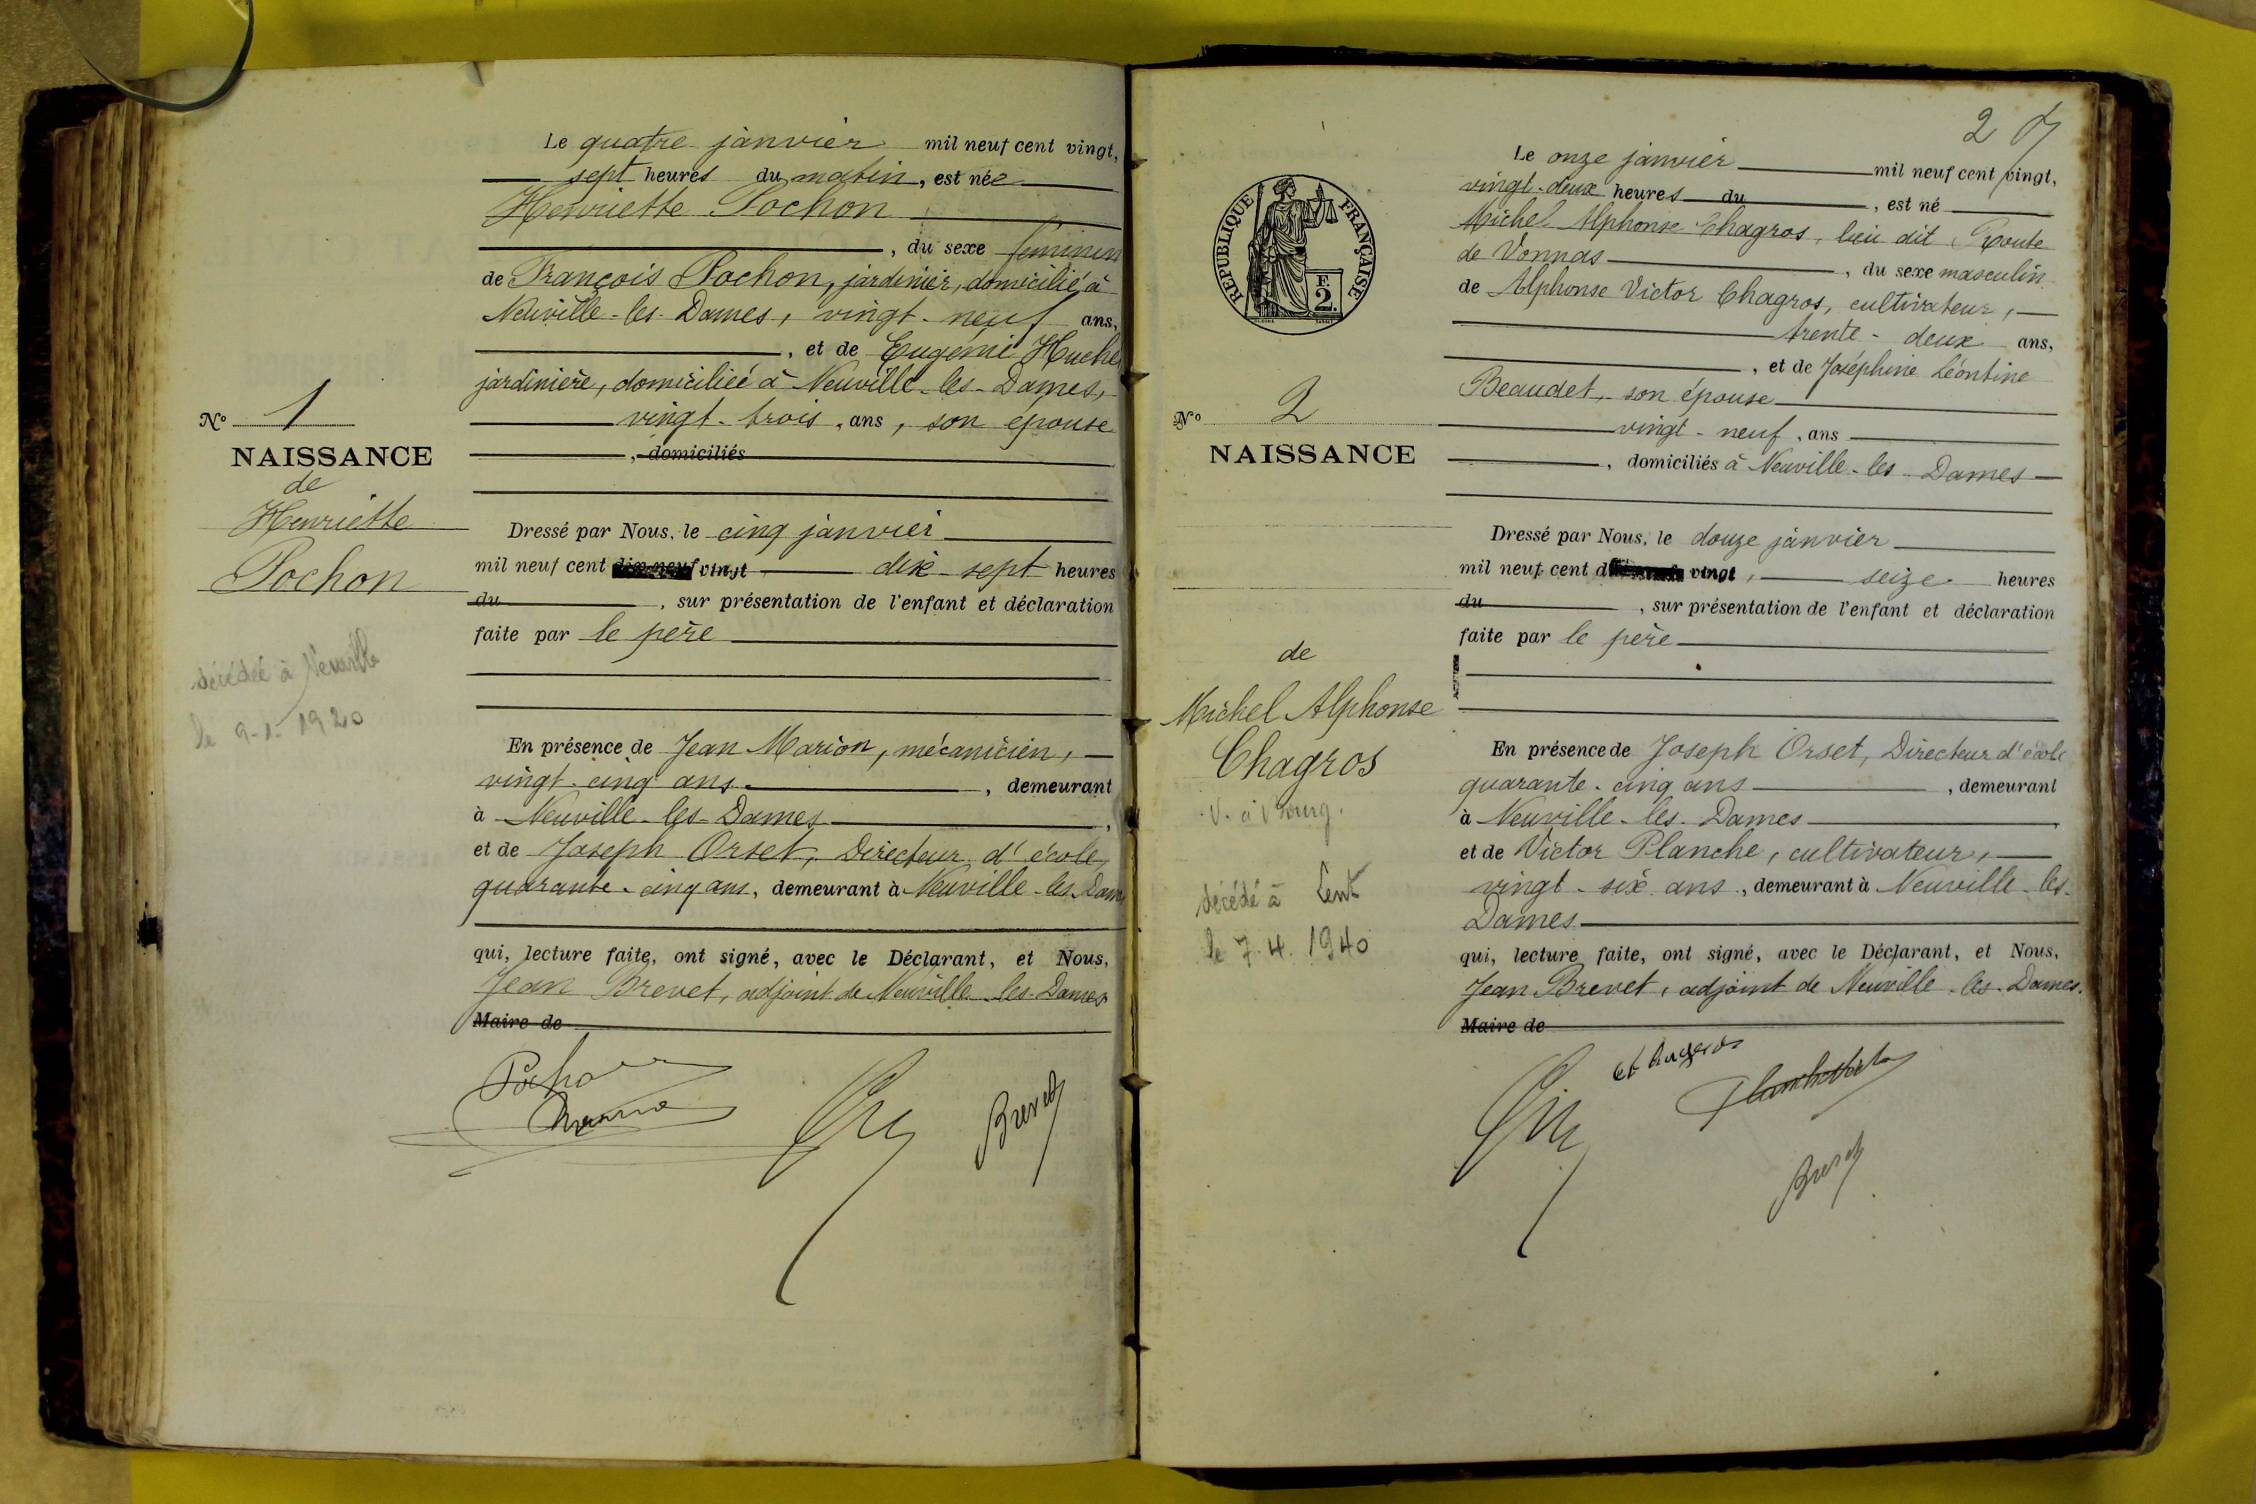 Le quatre janvier mil neuf cent vingt,
sept heures du matin, est née
Henriette Pochon
, du sexe féminin
de François Pochon, jardinier, domicilié à
Neuville-les-Dames, vingt-neuf ans,
, et de Eugénie
jardinière, domiciliée à Neuville-les-Dames,
vingt-trois, ans, son épouse
, domiciliés
Nº 1
NAISSANCE
de
Henriette
Pochon
décédée à Neuville
le 9-1-1920
Dressé par Nous, le cinq janvier
mil neuf cent dix-neuf vingt dix-sept heures
du , sur présentation de l'enfant et déclaration
faite par le père
En présence de Jean Marion, mécanicien,
vingt-cinq ans , demeurant
à Neuville-les-Dames ,
et de Joseph Orset, Directeur d'école,
quarante-cinq ans, demeurant à Neuville-les-Dames
qui, lecture faite, ont signé, avec le Déclarant, et Nous,
Jean Brevet, adjoint de Neuville-les-Dames
Maire de
Pochon
Brevet
2
RÉPUBLIQUE FRANÇAISE
E
2.
Le onze janvier mil neuf cent vingt,
vingt-deux heures du , est né
Michel Alphonse Chagros, lieu dit Route
de Vonnas , du sexe masculin
de Alphonse Victor Chagros, cultivateur,
trente-deux ans,
, et de Joséphine Léontine
Beaudet, son épouse
vingt-neuf, ans
, domiciliés à Neuville-les-Dames
Nº 2
NAISSANCE
de
Michel Alphonse
Chagros
V. à Bourg.
décédé à Lent
le 7.4.1940
Dressé par Nous, le douze janvier
mil neuf cent vingt, seize heures
du , sur présentation de l'enfant et déclaration
faite par le père
En présence de Joseph Orset, Directeur d'école
quarante-cinq ans , demeurant
à Neuville-les-Dames
et de Victor Planche, cultivateur,
vingt-six ans, demeurant à Neuville-les-
Dames
qui, lecture faite, ont signé, avec le Déclarant, et Nous,
Jean Brevet, adjoint de Neuville-les-Dames.
Maire de
Brevet